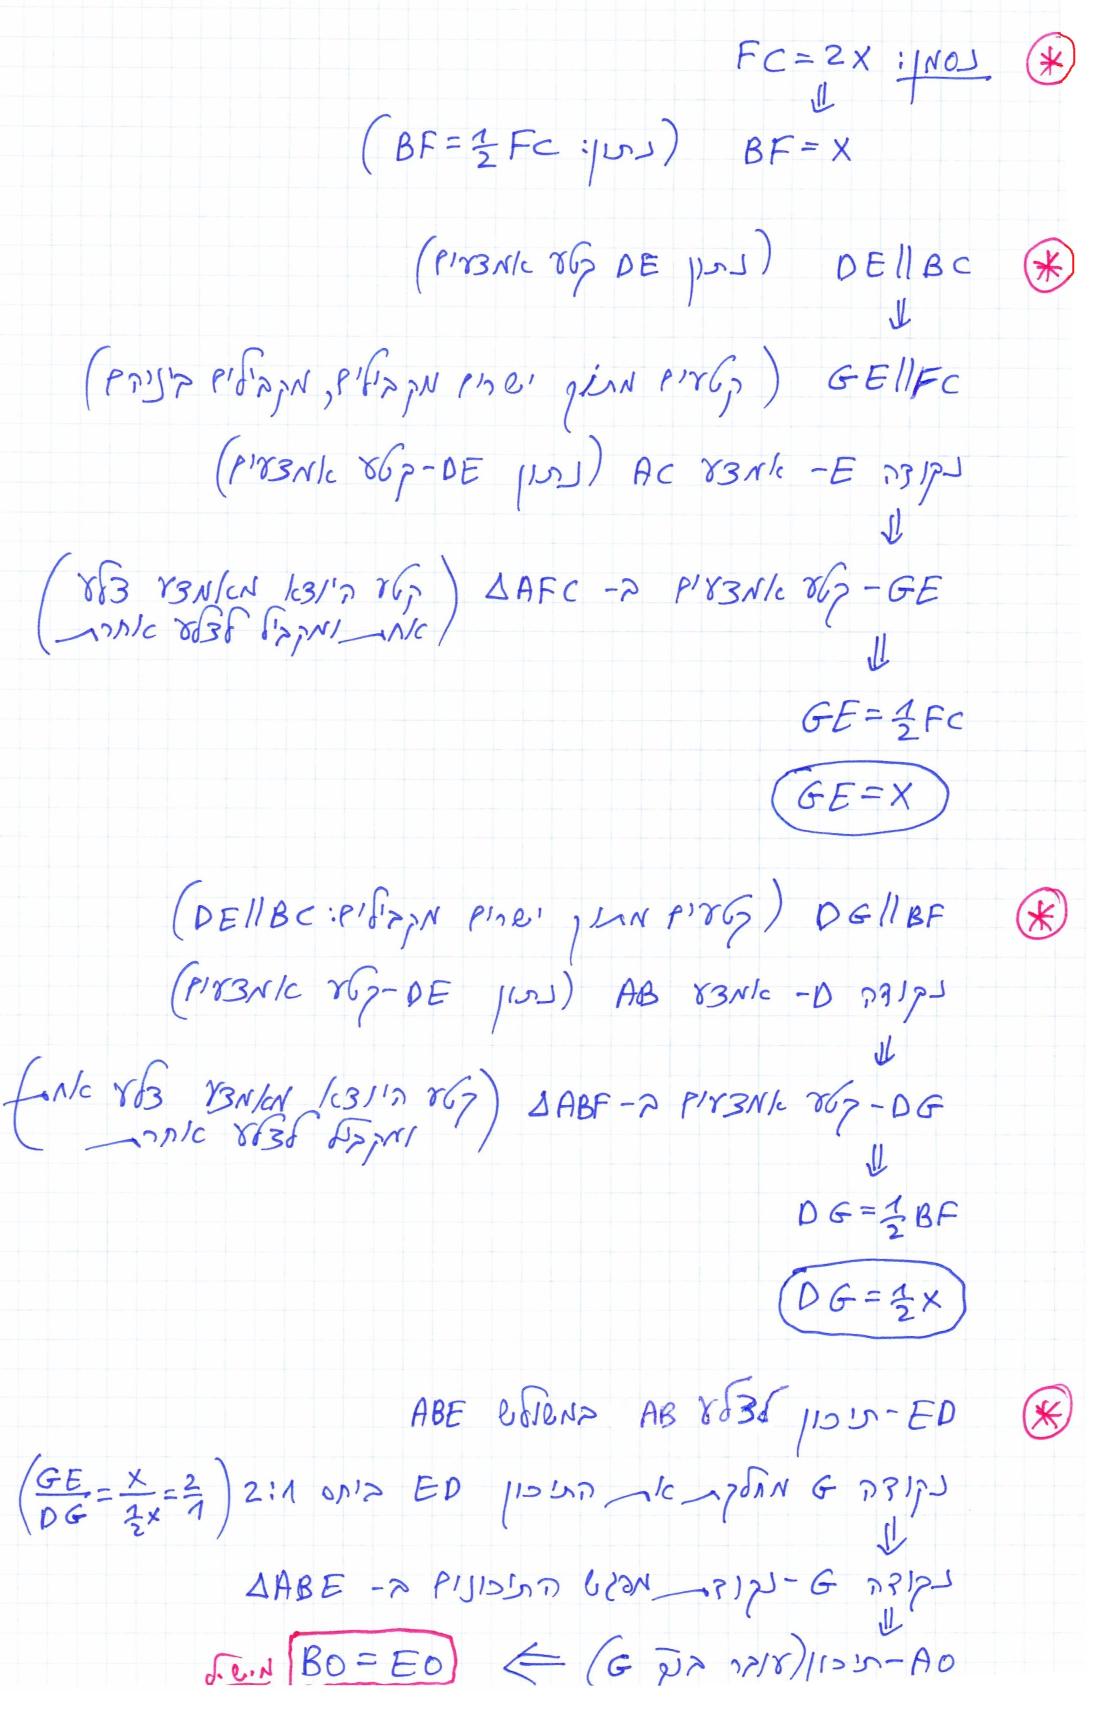 נסמן: FC=2X
⇓
BF=X (נתון: BF=½FC)
DE||BC (נתון DE קטע אמצעים)
⇓
GE||FC (קטעים מתוך ישרים מקבילים, מקבילים ביניהם)
נקודה E- אמצע AC (נתון DE-קטע אמצעים)
⇓
GE-קטע אמצעים ב- ΔAFC (קטע היוצא מאמצע צלע
אחת ומקביל לצלע אחרת)
⇓
GE=½FC
GE=X
DG||BF (קטעים מתוך ישרים מקבילים: DE||BC)
נקודה D- אמצע AB (נתון DE-קטע אמצעים)
⇓
DG-קטע אמצעים ב-ΔABF (קטע היוצא מאמצע צלע אחת
ומקביל לצלע אחרת)
⇓
DG=½BF
DG=½X
ED-תיכון לצלע AB במשולש ABE
נקודה G מחלקת את התיכון ED ביחס 2:1 (GE/DG=X/½X=2/1)
⇓
נקודה G-נקודת מפגש התיכונים ב- ΔABE
⇓
AO-תיכון (עובר בנק' G) ⇐ BO=EO מ.ש.ל